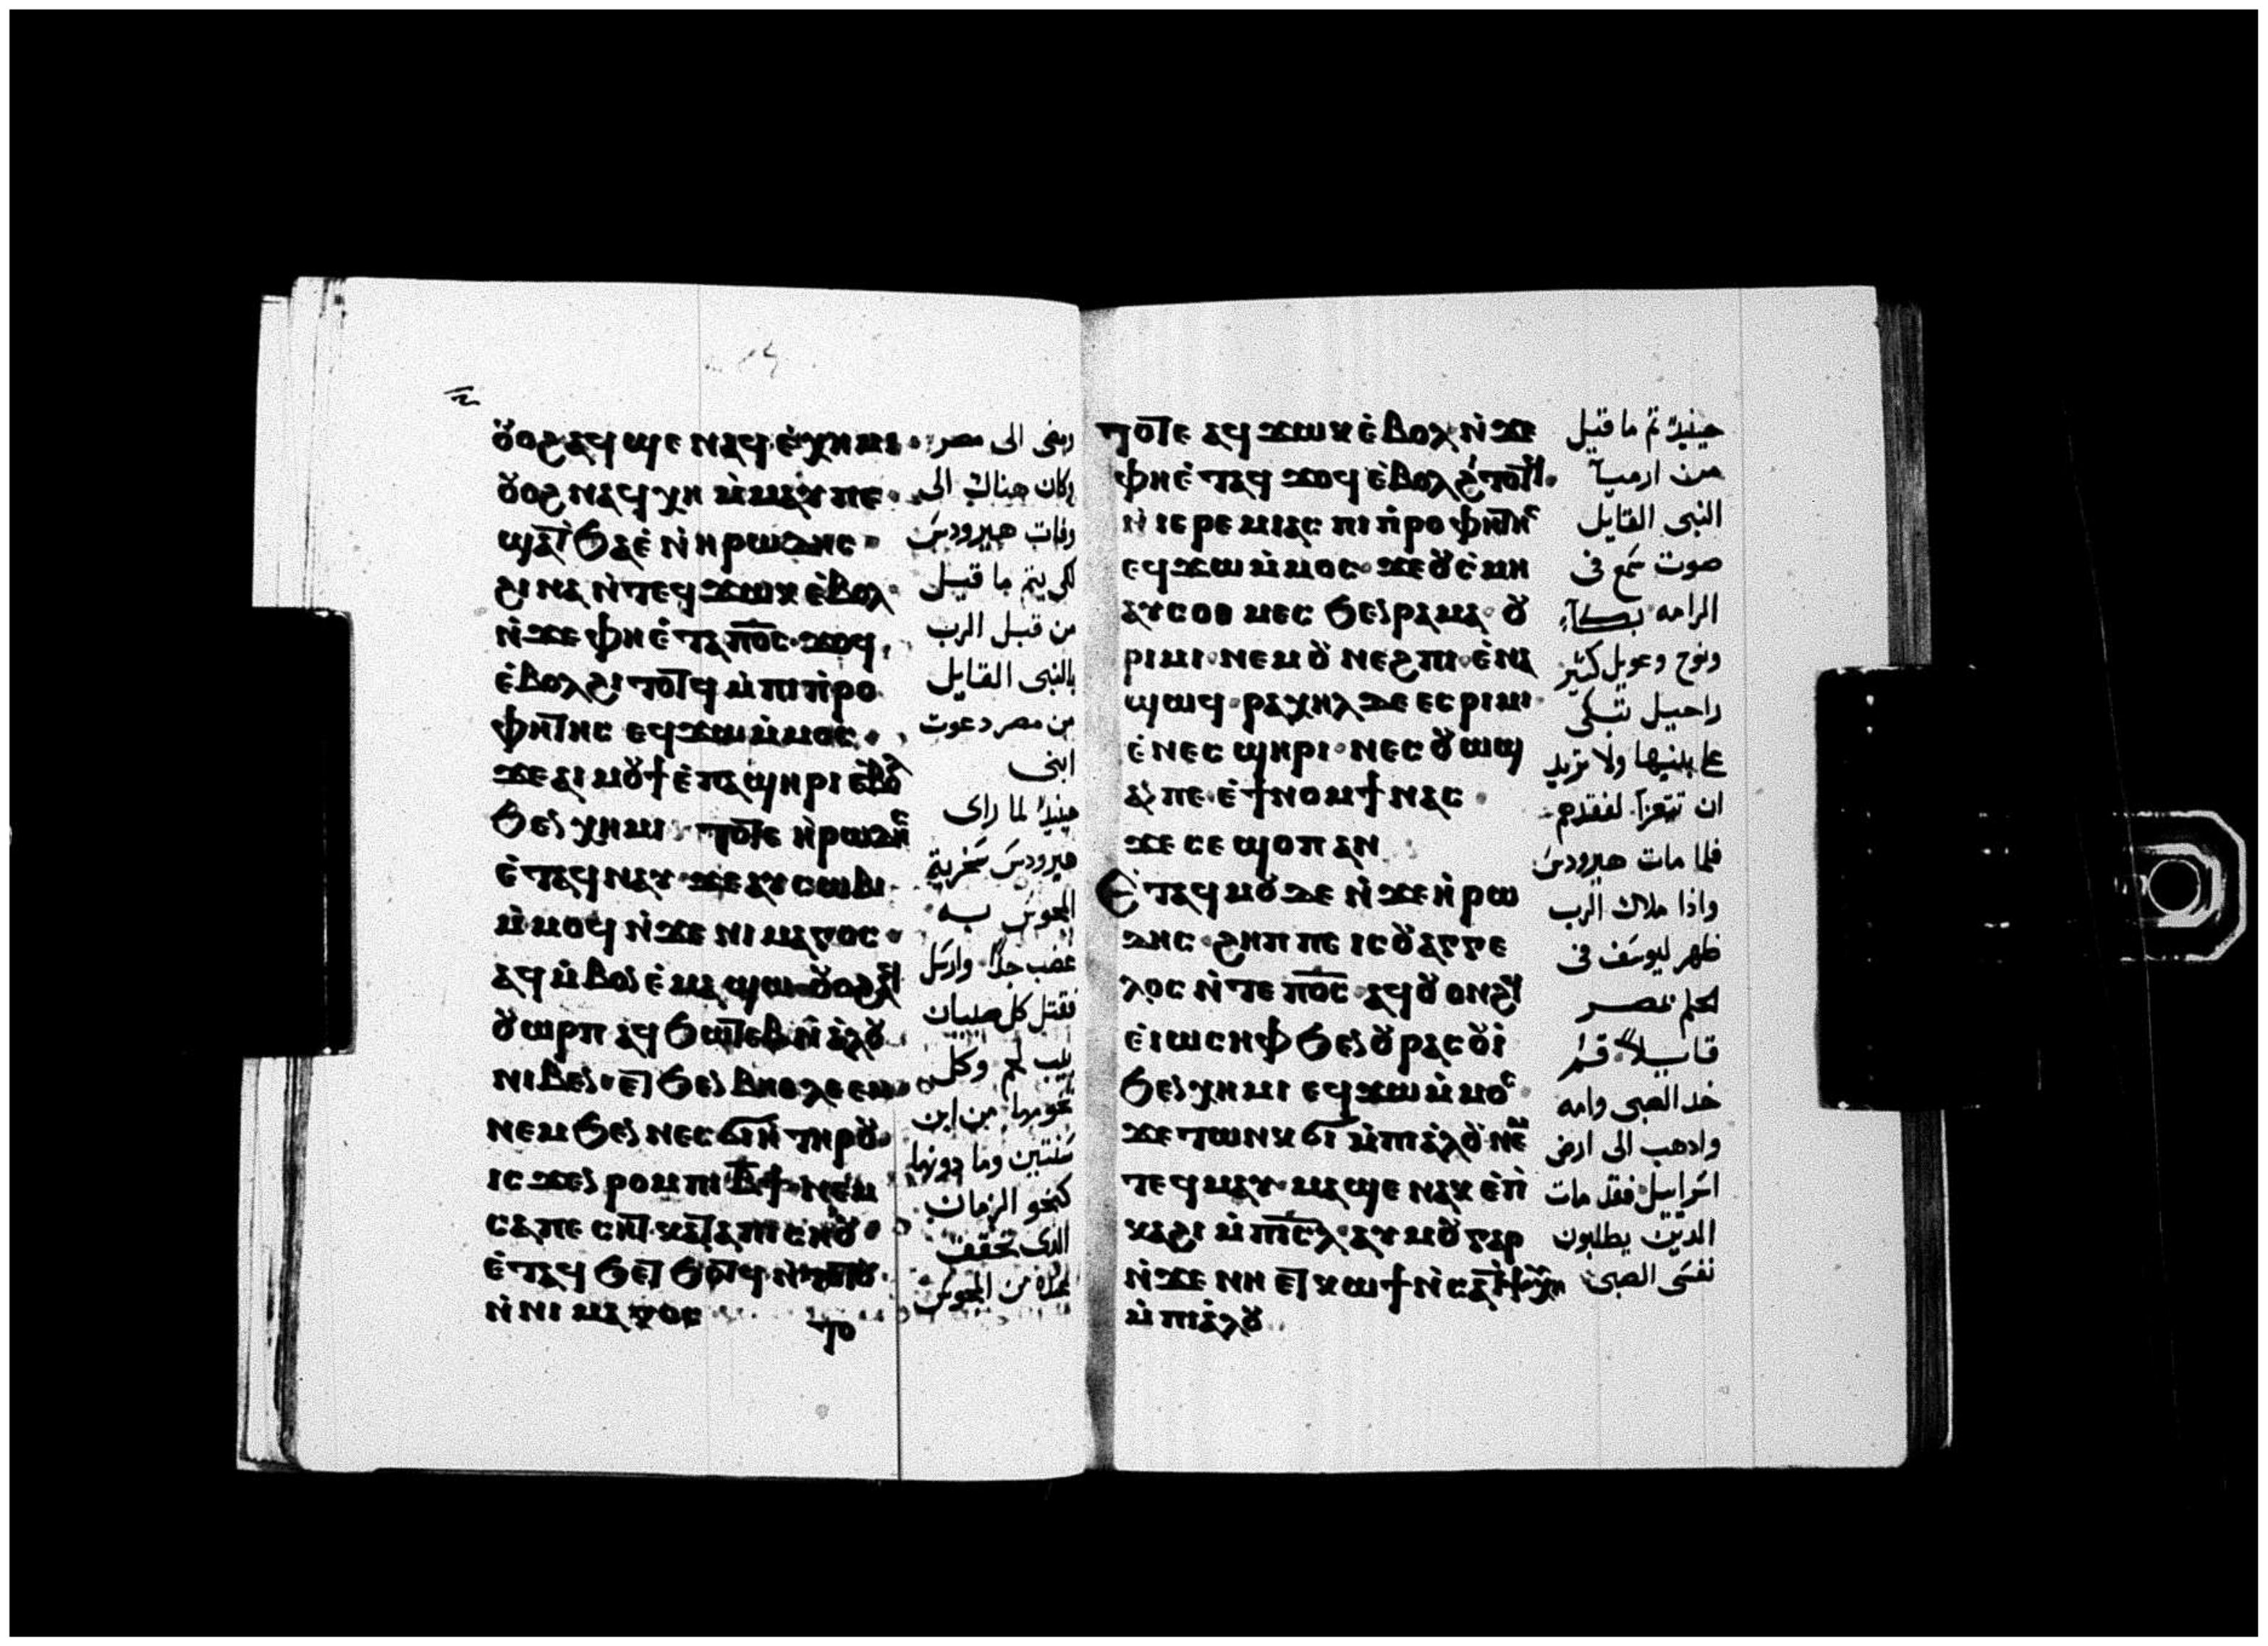 ⲟⲩⲟϩ ⲁϥϣⲉ ⲛⲁϥ ⲉ̀ⲭⲏⲙⲓ
ⲟⲩⲟϩ ⲛⲁϥⲭⲏ ⲙ̀ⲙⲁⲩ ⲡⲉ
ϣⲁⲧϧⲁⲉ̀ ⲛ̀ⲏⲣⲱⲇⲏⲥ
ϩⲓⲛⲁ ⲛ̀ⲧⲉϥϫⲱⲕ ⲉ̀ⲃⲟⲗ
ⲛ̀ϫⲉ ⲫⲏ ⲉ̀ⲧⲁ ⲡ̅ⲟ̅ⲥ̅ ϫⲟϥ
ⲉ̀ⲃⲟⲗϩⲓⲧⲟⲧϥ ⲙ̀ⲡⲓⲡ̀ⲣⲟ
ⲫⲏⲧⲏⲥ ⲉϥϫⲱ ⲙ̀ⲙⲟⲥ
ϫⲉ ⲁⲓⲙⲟⲩϯ ⲉ̀ⲡⲁϣⲏⲣⲓ ⲉ̀ⲃⲟⲗ
ϧⲉⲛ ⲭⲏⲙⲓ ⲧⲟⲧⲉ ⲏ̀ⲣⲱⲇⲏⲥ
ⲉ̀ⲧⲁϥⲛⲁⲩ ϫⲉ ⲁⲩⲥⲱⲃⲓ
ⲙ̀ⲙⲟϥ ⲛ̀ϫⲉ ⲛⲓⲙⲁⲅⲟⲥ
ⲁϥⲙ̀ⲃⲟⲛ ⲉ̀ⲙⲁϣⲱ ⲟⲩⲟϩ ⲁϥ
ⲟⲩⲱⲣⲡ ⲁϥϧⲱⲧⲉⲃ ⲛ̀ⲁ̀ⲗⲟⲩ
ⲛⲓⲃⲉⲛ ⲉⲧϧⲉⲛ ⲃⲏⲑⲗⲉⲉⲙ
ⲛⲉⲙ ϧⲉⲛ ⲛⲉⲥϭⲓⲏ ⲧⲏⲣⲟⲩ
ⲓⲥϫⲉⲛ ⲣⲟⲙⲡⲓ ⲃ̅ϯ ⲛⲉⲙ
ⲥⲁⲡⲉⲥⲏⲧ ⲕⲁⲧⲁ ⲡⲓⲥⲏⲟⲩ
ⲉ̀ⲧⲁϥϧⲉⲧϧⲟⲧϥ ⲛ̀ⲧⲟⲧⲟⲩ
ⲛ̀ⲛⲓⲙⲁⲅⲟⲥ
ⲧⲟ
ومضى الى مصر
وكان هناك الى
وفات هيرودس
لكى يتم ما قيل
من قبل الرب
بالنبى القايل
من مصر دعوت
ابنى
حينيذ لما راى
هيرودس سخرية
المجوس به
غضب جدا وارسل
فقتل كل صبيان
بيت لحم وكل
تخومها من ابن
سنتين وما دونها
كنحو الزمان
الذى تحقق
عنده من المجوس
ⲧⲟⲧⲉ ⲁϥϫⲱⲕ ⲉ̀ⲃⲟⲗ ⲛ̀ϫⲉ
ⲫⲏ ⲉ̀ⲧⲁϥϫⲟϥ ⲉ̀ⲃⲟⲗϩⲓⲧⲟⲧϥ
ⲛ̀ⲓⲉⲣⲉⲙⲓⲁⲥ ⲡⲓⲡ̀ⲣⲟⲫⲏⲧⲏⲥ
ⲉϥϫⲱ ⲙ̀ⲙⲟⲥ ϫⲉ ⲟⲩⲥ̀ⲙⲏ
ⲁⲩⲥⲟⲑⲙⲉⲥ ϧⲉⲛ ⲣⲁⲙⲁ ⲟⲩ
ⲣⲓⲙⲓ ⲛⲉⲙ ⲟⲩⲛⲉϩⲡⲓ ⲉ̀ⲛⲁ
ϣⲱϥ ⲣⲁⲭⲏⲗ ⲇⲉ ⲉⲥⲣⲓⲙⲓ
ⲉ̀ⲛⲉⲥϣⲏⲣⲓ ⲛⲉⲥⲟⲩⲱϣ
ⲁⲛ ⲡⲉ ⲉ̀ϯⲛⲟⲙϯ ⲛⲁⲥ
ϫⲉ ⲥⲉϣⲟⲡ ⲁⲛ
Ⲉ̀ⲧⲁϥⲙⲟⲩ ⲇⲉ ⲛ̀ϫⲉ ⲏ̀ⲣⲱ
ⲇⲏⲥ ϩⲏⲡⲡⲉ ⲓⲥ ⲟⲩⲁⲅⲅⲉ
ⲗⲟⲥ ⲛ̀ⲧⲉ ⲡ̅ⲟ̅ⲥ̅ ⲁϥⲟⲩⲟⲛϩϥ
ⲉ̀ⲓⲱⲥⲏⲫ ϧⲉⲛ ⲟⲩⲣⲁⲥⲟⲩⲓ̀
ϧⲉⲛ ⲭⲏⲙⲓ ⲉϥϫⲱ ⲙ̀ⲙⲟⲥ
ϫⲉ ⲧⲱⲛⲕ ϭⲓ ⲙ̀ⲡⲓⲁ̀ⲗⲟⲩ ⲛⲉⲙ
ⲧⲉϥⲙⲁⲩ ⲙⲁϣⲉ ⲛⲁⲕ ⲉ̀ⲡ̀
ⲕⲁϩⲓ ⲙ̀ⲡⲓ̅ⲥ̅ⲗ̅ ⲁⲩⲙⲟⲩ ⲅⲁⲣ
ⲛ̀ϫⲉ ⲛⲏ ⲉⲧⲕⲱϯ ⲛ̀ⲥⲁ ⲧ̀ⲯⲩⲭⲏ
ⲙ̀ⲡⲓⲁ̀ⲗⲟⲩ
حينيذ تم ما قيل
من ارميآ
النبى القايل
صوت سمع فى
الرامه بكآء
ونوح وعويل كثير
راحيل تبكى
على بنيها ولا تريد
ان تتعزا لفقدهم
فلما مات هيرودس
واذا ملاك الرب
ظهر ليوسف فى
الحلم بمصر
قايلا قم
خذ الصبى وامه
واذهب الى ارض
اسراييل فقد مات
الذين يطلبون
نفس الصبى